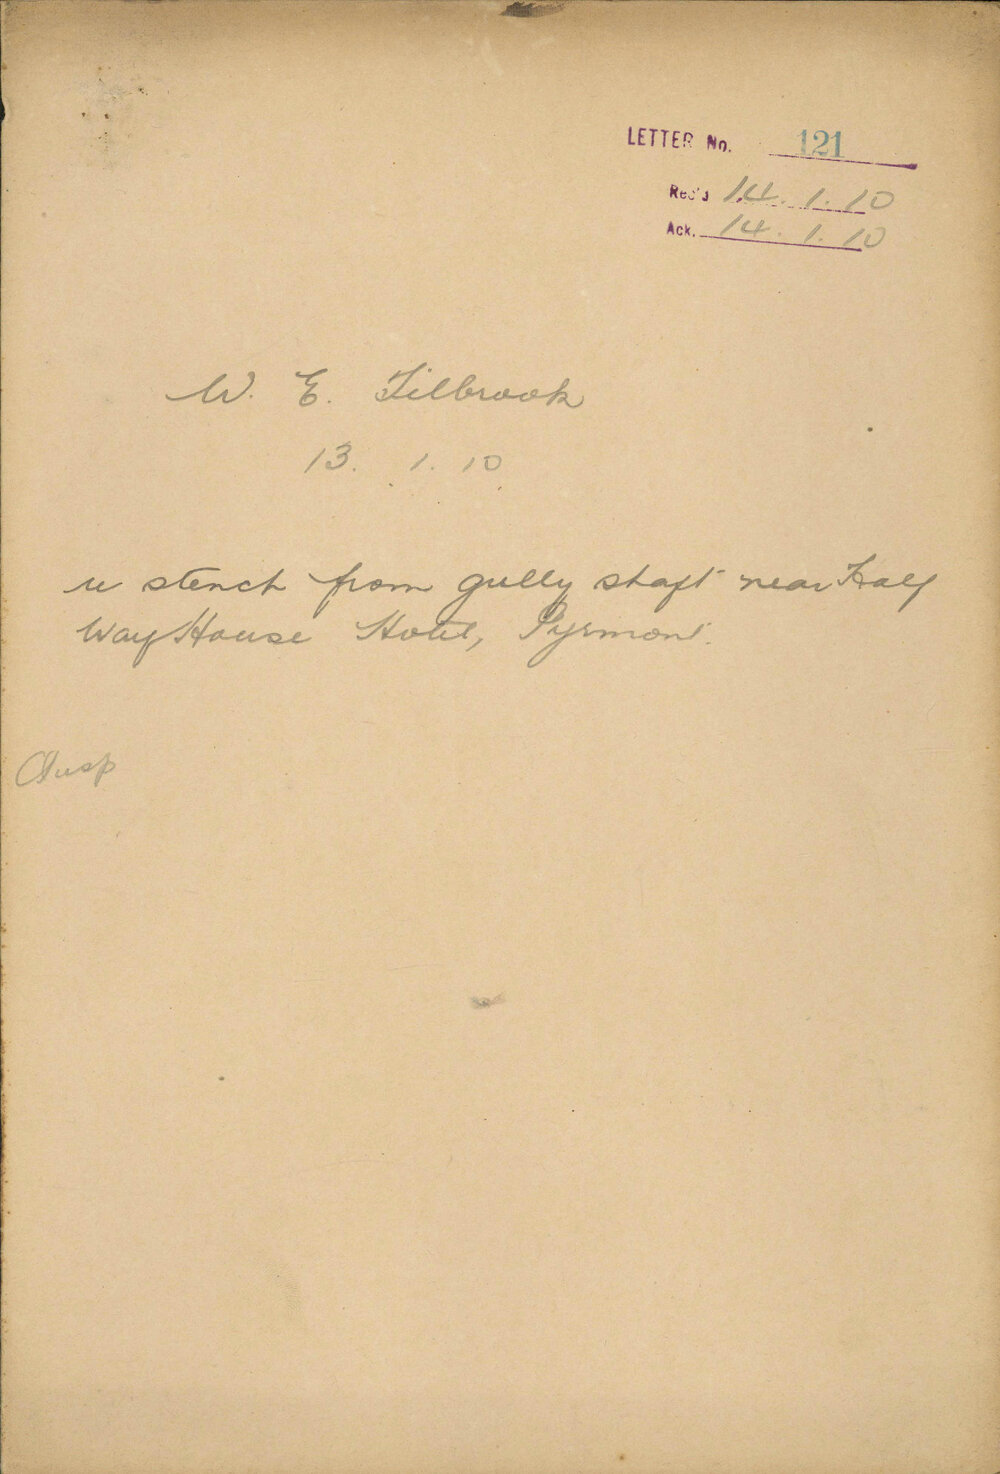 LETTER No. 121
Rec'd 14.1.10
Ack. 14.1.10
W. E. Tilbrook
13. 1. 10
re stench from gully shaft near Half
Way House Hotel, Pyrmont.